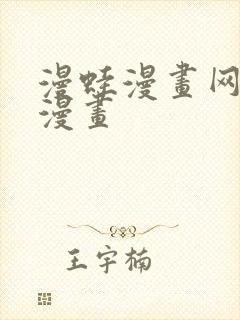 漫蛙漫畫网
漫畫
王宇楠